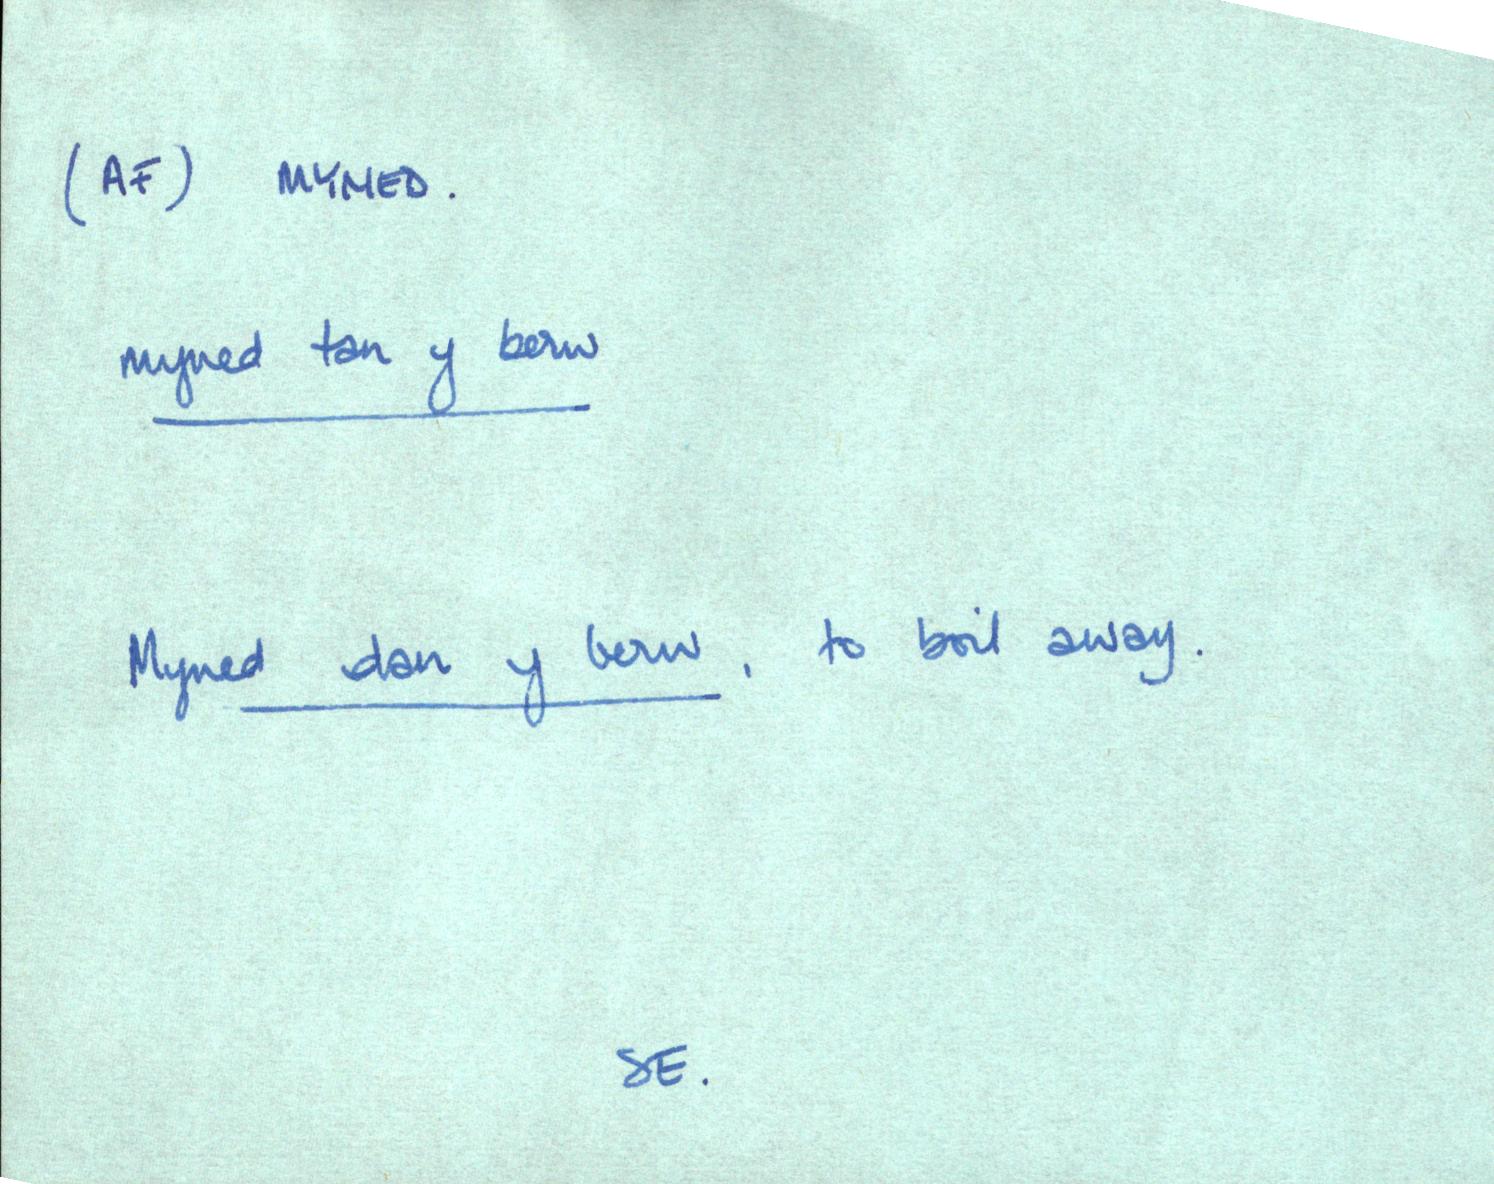 (AF) MYNED.
myned tan y berw
Myned dan y berw, to boil away.
SE.